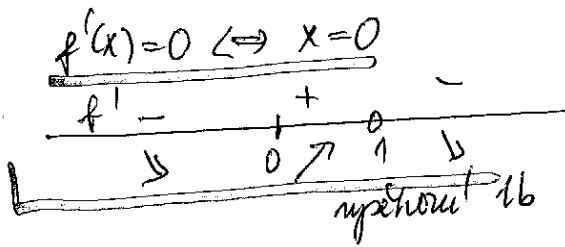 f'(x)=0 ⇔ x=0
f' - + -
0 1
1b